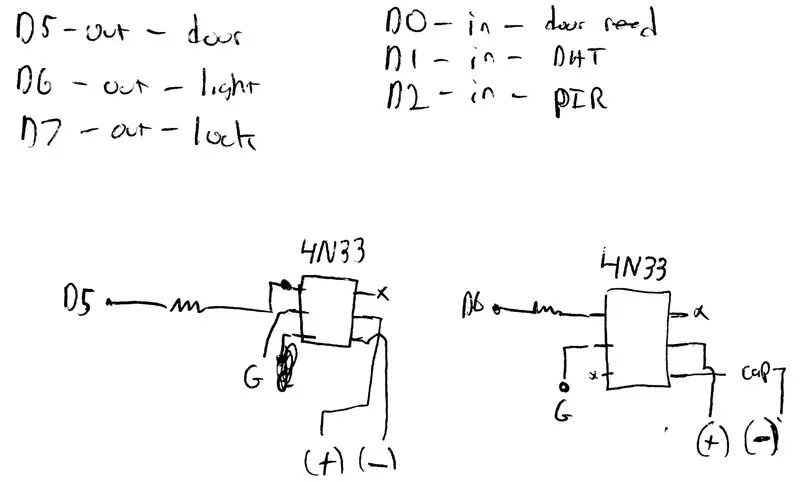 D5 - out - door
D6 - out - light
D7 - out - lock
D0 - in - door reed
D1 - in - DHT
D2 - in - PIR
4N33
D5
x
G
(+) (-)
4N33
D6
x
x
cap
G
(+) (-)